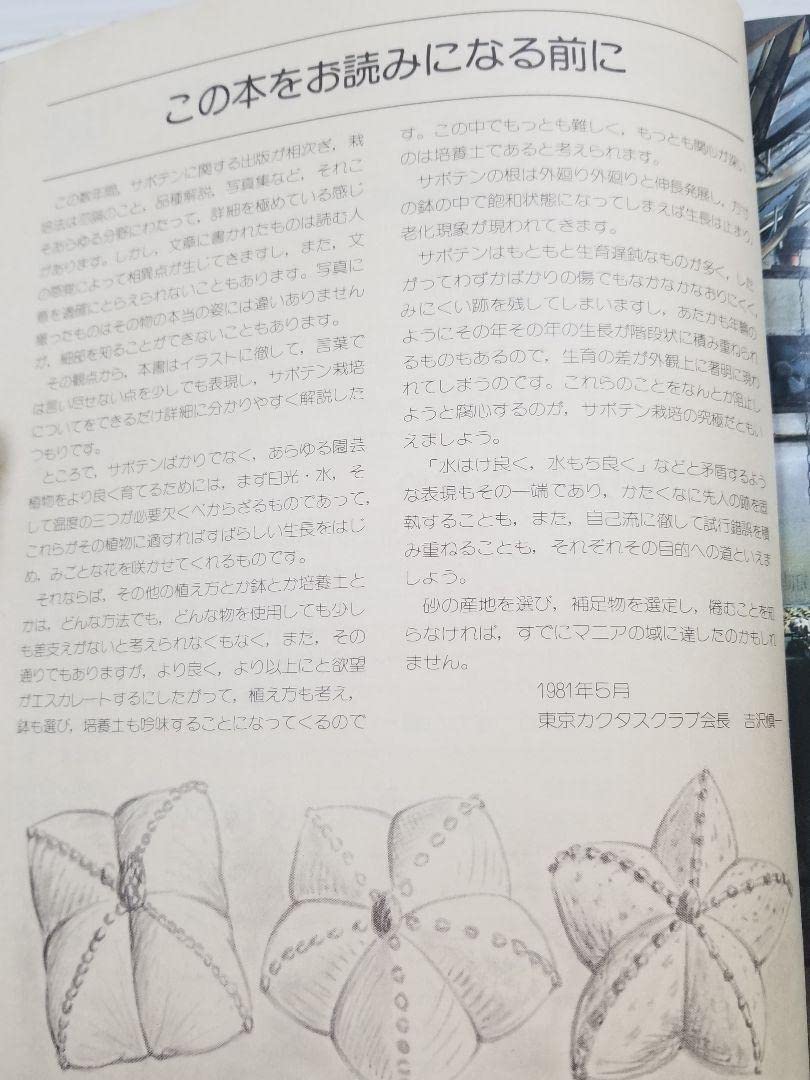 この本をお読みになる前に
この数年間，サボテンに関する出版が相次ぎ，栽
培法は勿論のこと，品種解説，写真集など，それこ
そあらゆる分野にわたって，詳細を極めている感じ
があります。しかし，文章に書かれたものは読む人
の感覚によって相異点が生じてきますし，また，文
意を適確にとらえられないこともあります。写真に
撮ったものはその物の本当の姿には違いありません
が，細部を知ることができないこともあります。
その観点から，本書はイラストに徹して，言葉で
は言い尽せない点を少しでも表現し，サボテン栽培
についてをできるだけ詳細に分かりやすく解説した
つもりです。
ところで，サボテンばかりでなく，あらゆる園芸
植物をより良く育てるためには，まず日光・水，そ
して温度の三つが必要欠くべからざるものであって，
これらがその植物に適すればすばらしい生長をはじ
め，みごとな花を咲かせてくれるものです。
それならば，その他の植え方とか鉢とか培養土と
かは，どんな方法でも，どんな物を使用しても少し
も差支えがないと考えられなくもなく，また，その
通りでもありますが，より良く，より以上にと欲望
がエスカレートするにしたがって，植え方も考え，
鉢も選び，培養土も吟味することになってくるので
す。この中でもっとも難しく，もっとも関心が深い
のは培養土であると考えられます。
サボテンの根は外廻り外廻りと伸長発展し，
の鉢の中で飽和状態になってしまえば生長は止まり，
老化現象が現われてきます。
サボテンはもともと生育遅鈍なものが多く，した
がってわずかばかりの傷でもなかなかなおりにくく，
みにくい跡を残してしまいますし，あたかも年輪の
ようにその年その年の生長が階段状に積み重ねられ
るものもあるので，生育の差が外観上に著明に現わ
れてしまうのです。これらのことをなんとか阻止し
ようと腐心するのが，サボテン栽培の究極だともい
えましょう。
「水はけ良く，水もち良く」などと矛盾するよう
な表現もその一端であり，かたくなに先人の跡を固
執することも，また，自己流に徹して試行錯誤を積
み重ねることも，それぞれその目的への道といえま
しょう。
砂の産地を選び，補足物を選定し，倦むことを知
らなければ，すでにマニアの域に達したのかもしれ
ません。
1981年5月
東京カクタスクラブ会長　吉沢慎一